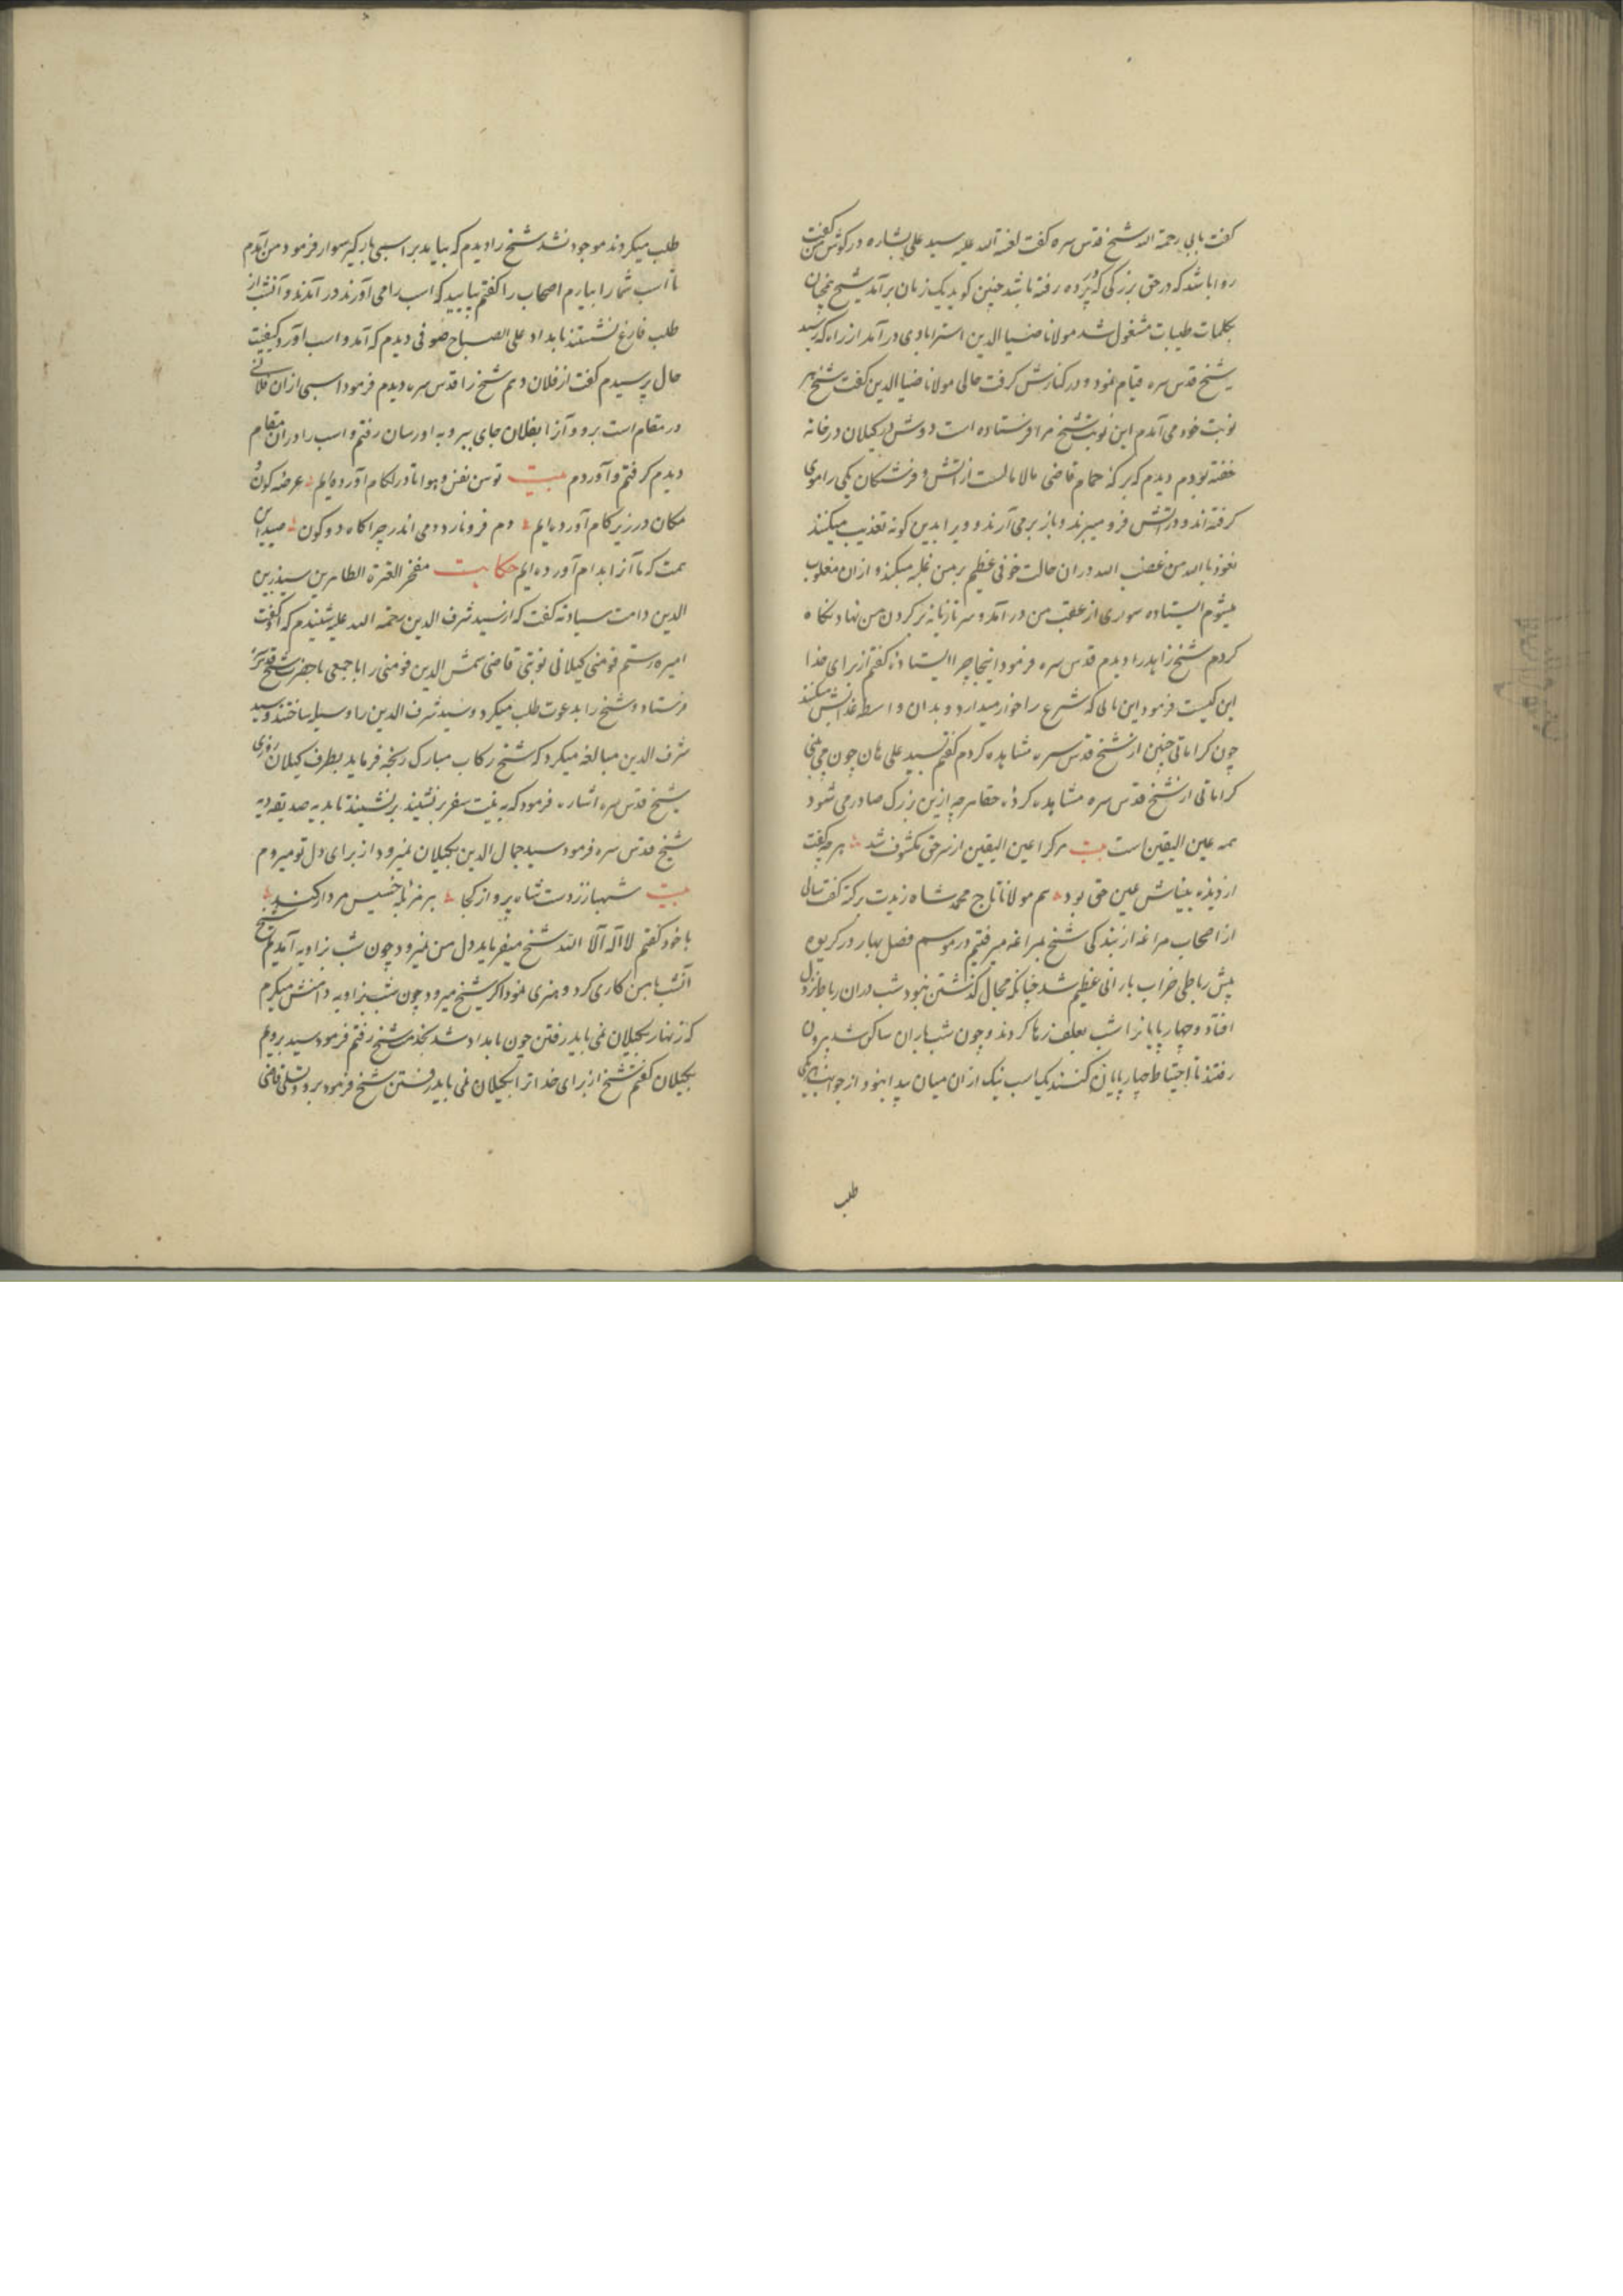 کفت بابی رحمة الله شیخ قدس سره کفت لعنة الله علیه سید علی بشاره در کوش من کفت
روا باشد که در حق بزرکی که در پرده رفته باشد چنین کوید یک زمان برآمد شیخ همچنان
بکلمات طیبات مشغول شد مولانا ضیا الدین استرابادی درآمد از راه که رسید
شیخ قدس سره قیام نمود و در کنارش کرفت حالی مولانا ضیا الدین کفت شیخ هر
نوبت خود می آمدم این نوبت شیخ مرا فرستاده است دوش در کیلان در خانه
خفته بودم دیدم که برکه حمام قاضی مالامالست از اتش و فرشتکان یکی را موی
کرفته اند و در اتش فرو میبرند و باز برمی آرند و ویرا بدین کونه تعذیب میکنند
نعوذ بالله من غضب الله در ان حالت خوفی عظیم بر من غلبه میکند و ازان مغلوب
میشوم ایستاده سواری از عقب من درآمد و سر تازیانه بر کردن من نهاد نکاه
کردم شیخ زاهد را دیدم قدس سره فرمود اینجا چرا ایستادهٔ کفتم از برای خدا
این کیست فرمود این بابی که شرع را خوار میدارد و بدان واسطه عذابش میکنند
چون کراماتی چنین از شیخ قدس سره مشاهده کردم کفتم سید علی هان چون می بینی
کراماتی از شیخ قدس سره مشاهده کردهٔ حقا هرچه ازین بزرک صادر می شود
همه عین الیقین است بیت هرکرا عین الیقین از سر حق مکشوف شد هرچه کفت
از دیده بیناش عین حق بود هم مولانا تاج محمد شاه زیدت برکته کفت سالی
از اصحاب مراغه از بندکی شیخ بمراغه میرفتیم در موسم فصل بهار در کریوه
پیش رباطی خراب بارانی عظیم شد چنانکه مجال کذشتن نبود شب دران رباط نزول
افتاد و چهارپایانرا شب بعلف رها کردند و چون شب باران ساکن شد بیرون
رفتند تا احتیاط چهارپایان کنند یک اسب نیک ازان میان پیدا نبود از جوانب
طلب
طلب میکردند موجود نشد شیخ را دیدم که بیاید بر اسبی بارکیر سوار فرمود من آمدم
تا اسب شما را بیارم اصحاب را کفتم بیایید که اسب را می آورند درآمدند و آنشب از
طلب فارغ نشستند بامداد علی الصباح صوفی دیدم که آمد و اسب آورد کیفیت
حال پرسیدم کفت از فلان دیم شیخ را قدس سره دیدم فرمود اسبی ازان فلانی
در مقام است برو و آنرا بفلان جای ببر و به او رسان رفتم و اسب را دران مقام
دیدم کرفتم و آوردم بیت توسن نفس و هوا تا در لکام آورده ایم عرضه کون و
مکان در زیر کام آورده ایم دم فرو نارد دمی اندر چراکاه دو کون صید این
همت که ما آنرا بدام آورده ایم حکایت مفخر العترة الطاهرین سید زین
الدین دامت سیادته کفت که از سید شرف الدین رحمة الله علیه شنیدم که او کفت
امیره رستم فومنی کیلانی نوبتی قاضی شمس الدین فومنی را با جمعی با حضرت شیخ قدس سره
فرستاد و شیخ را بدعوت طلب میکرد و سید شرف الدین را وسیله ساختند و سید
شرف الدین مبالغه میکرد که شیخ رکاب مبارک رنجه فرماید بطرف کیلان روزی
شیخ قدس سره اشاره فرمود که به نیت سفر برنشیند برنشیند تا بدیه صدیقه دیه
شیخ قدس سره فرمود سید جمال الدین بکیلان نمیرود از برای دل تو میروم
بیت شهباز ز دست شاه پرواز کجا بر هر خسیس مردار کند
با خود کفتم لا اله الا الله شیخ میفرماید دل من نمیرود چون شب بزاویه آمدیم شیخ
آنشب با من کاری کرد و هنری نمود اکر شیخ میرود چون شب بزاویه دامنش میکیرم
که زنهار بکیلان نمی باید رفتن چون بامداد شد بخدمت شیخ رفتم فرمود سید برویم
بکیلان کفتم شیخ از برای خدا ترا بکیلان نمی باید رفتن شیخ فرمود برو و تسلی قاضی